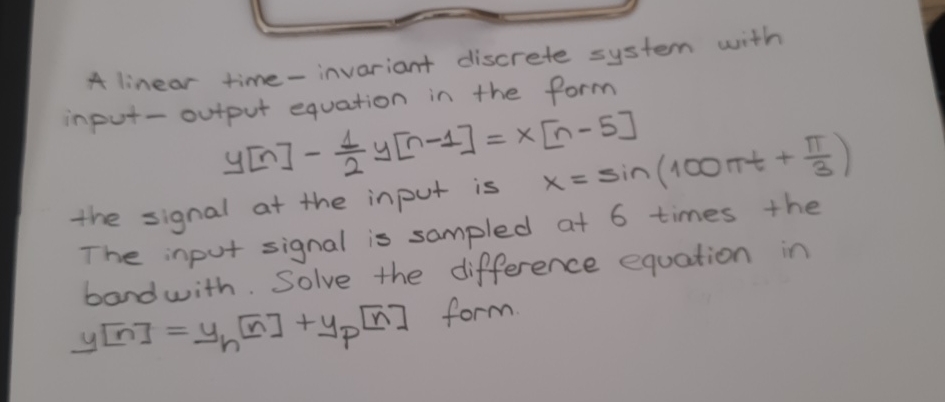 A linear time-invariant discrete system with
input-output equation in the form
y[n] - 1/2 y[n-1] = x[n-5]
the signal at the input is x = sin(100πt + π/3)
The input signal is sampled at 6 times the
bandwith. Solve the difference equation in
y[n] = yh[n] + yp[n] form.